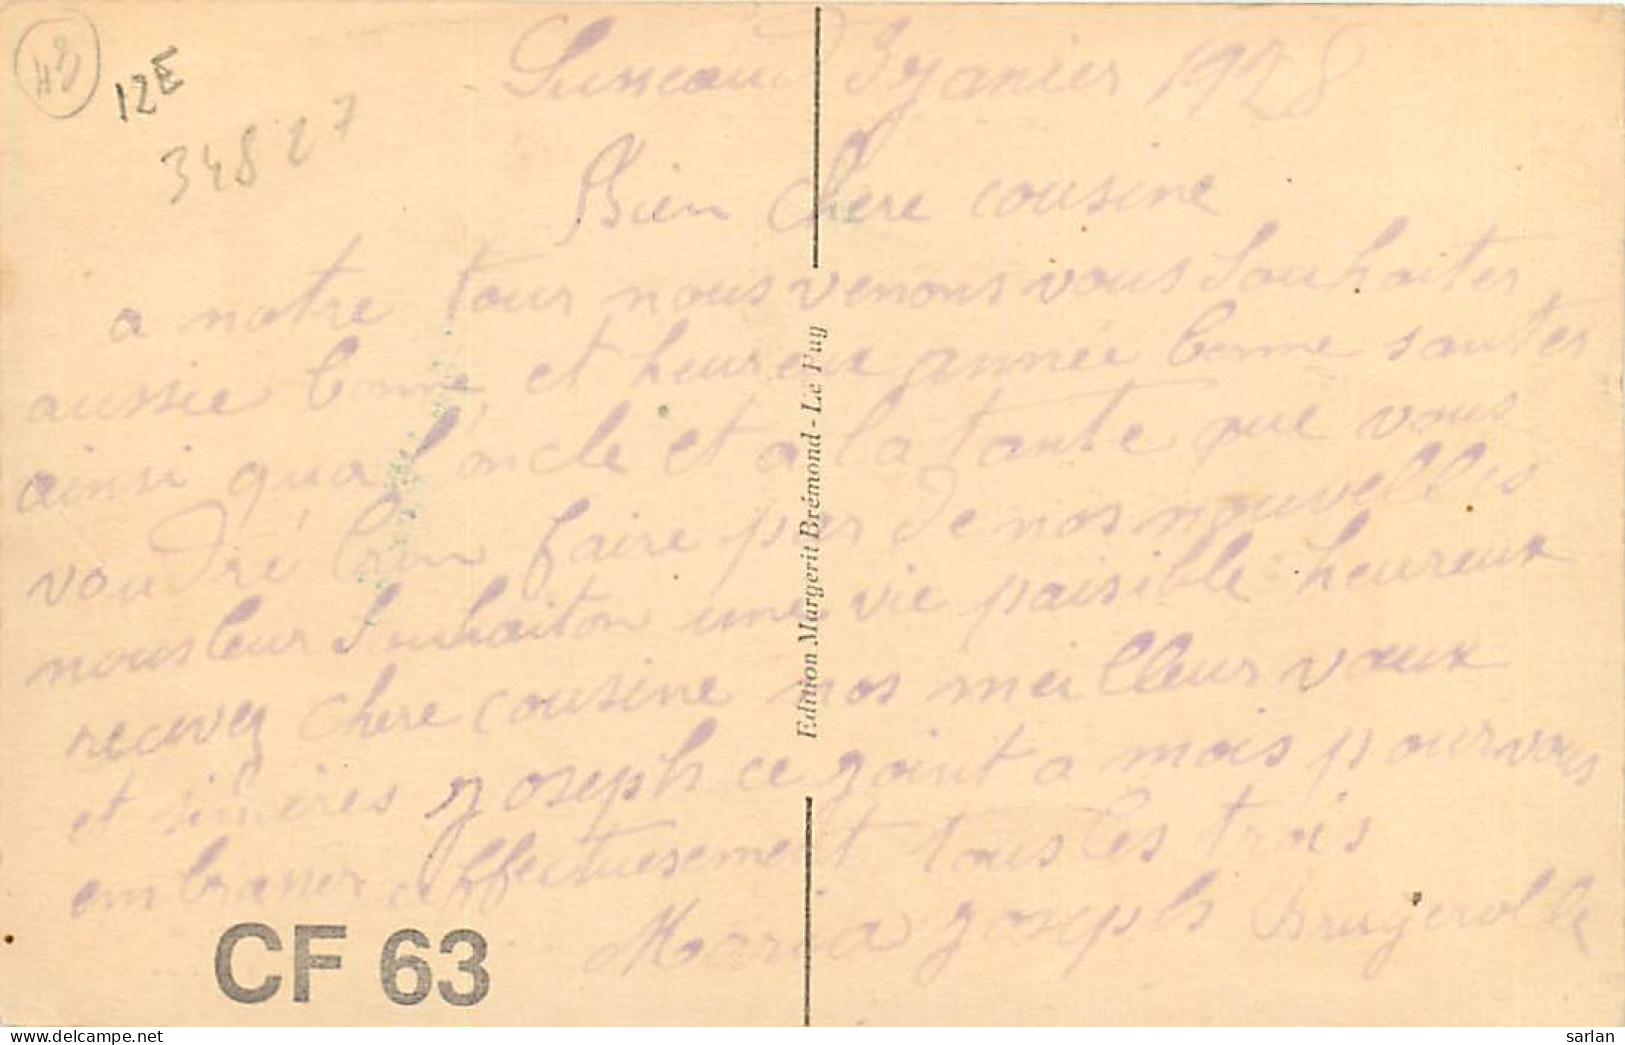 43
12E
34827
3 janvier 1928
Bien chere cousine
a notre tour nous venons vous souhaiter
aussie bonne et heureux année bonne santer
ainsi qua l'oncle et a la tante que vous
voudré bien faire par de nos nouvelles
nous leur souhaiton une vie paisible heureux
recevez chere cousine nos meilleur vœux
et sinceres joseph ce joint a mois pour vous
embrasser affectuesement tous les trois
Maria joseph Brugerolle
Edition Margerit Brémond - Le Puy
CF 63
sarlan